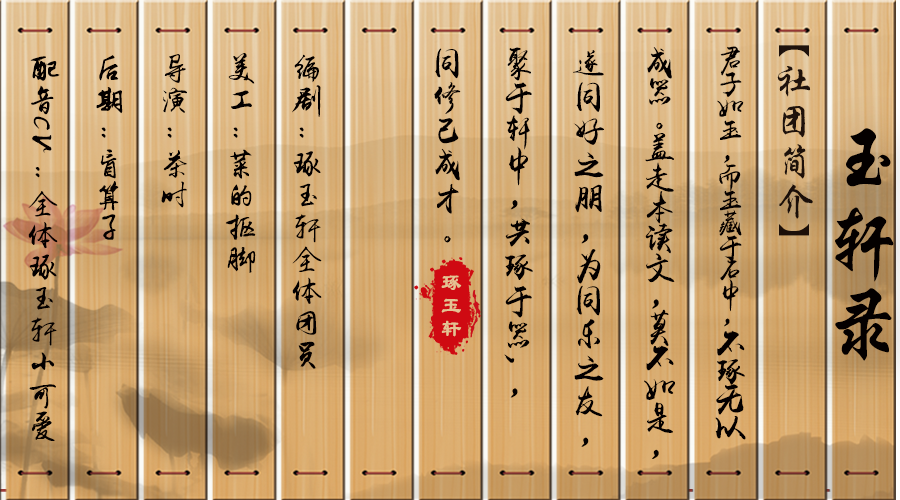 玉轩录
【社团简介】
君子如玉，而玉藏于石中，不琢无以
成器。盖走本读文，莫不如是，
遂同好之朋，为同乐之友，
聚于轩中，共琢于器，
同修己成才。
琢玉轩
编剧：琢玉轩全体团员
美工：菜的抠脚
导演：茶时
后期：盲筭子
配音CV：全体琢玉轩小可爱